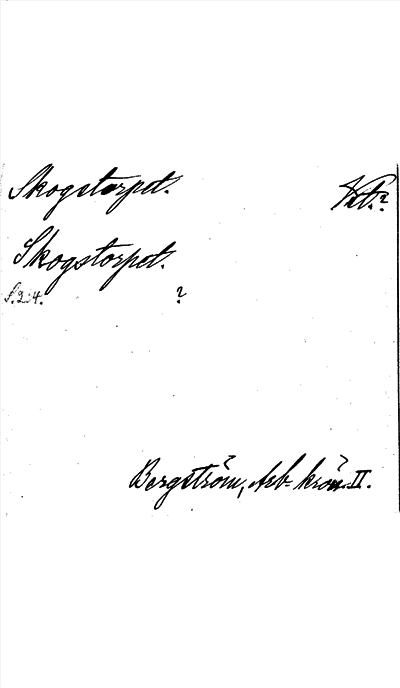 Skogstorpet.
Skogstorpet.
S. 24. ?
Bergström, Arb. krön. II.